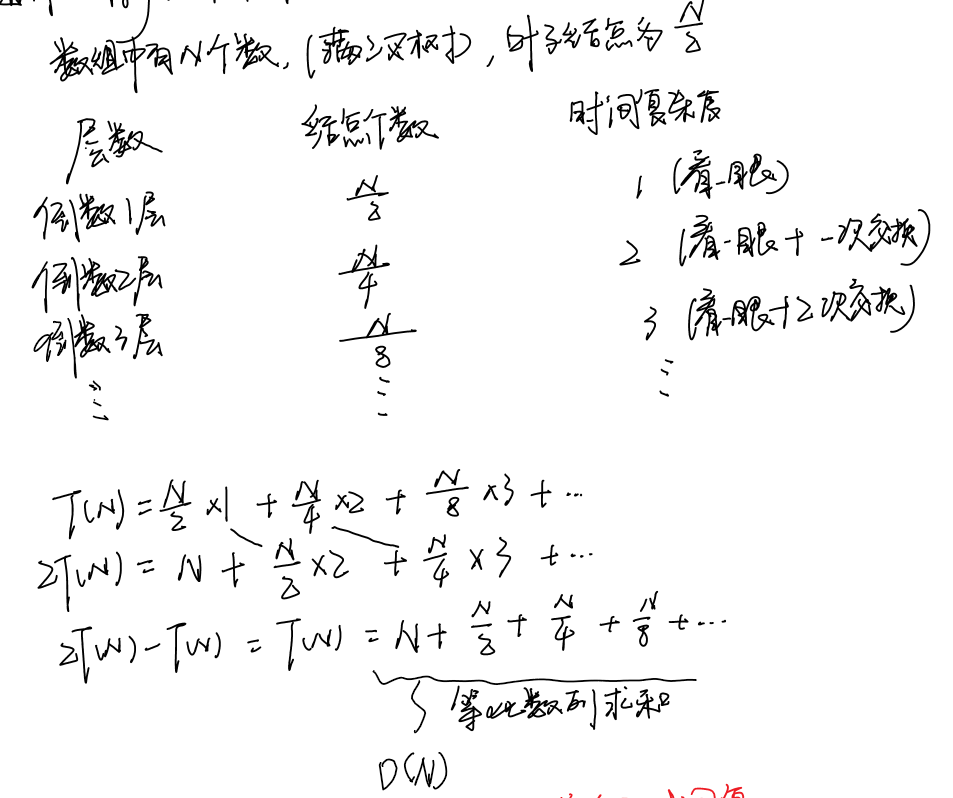 数组中有N个数，(满二叉树)，叶子结点为 N/2
层数 结点个数 时间复杂度
倒数1层 N/2 1 (看一眼)
倒数2层 N/4 2 (看一眼+一次交换)
倒数3层 N/8 3 (看一眼+2次交换)
⋮ ⋮ ⋮
T(N) = N/2 ×1 + N/4 ×2 + N/8 ×3 + …
2T(N) = N + N/2 ×2 + N/4 ×3 + …
2T(N) - T(N) = T(N) = N + N/2 + N/4 + N/8 + …
等比数列求和
O(N)